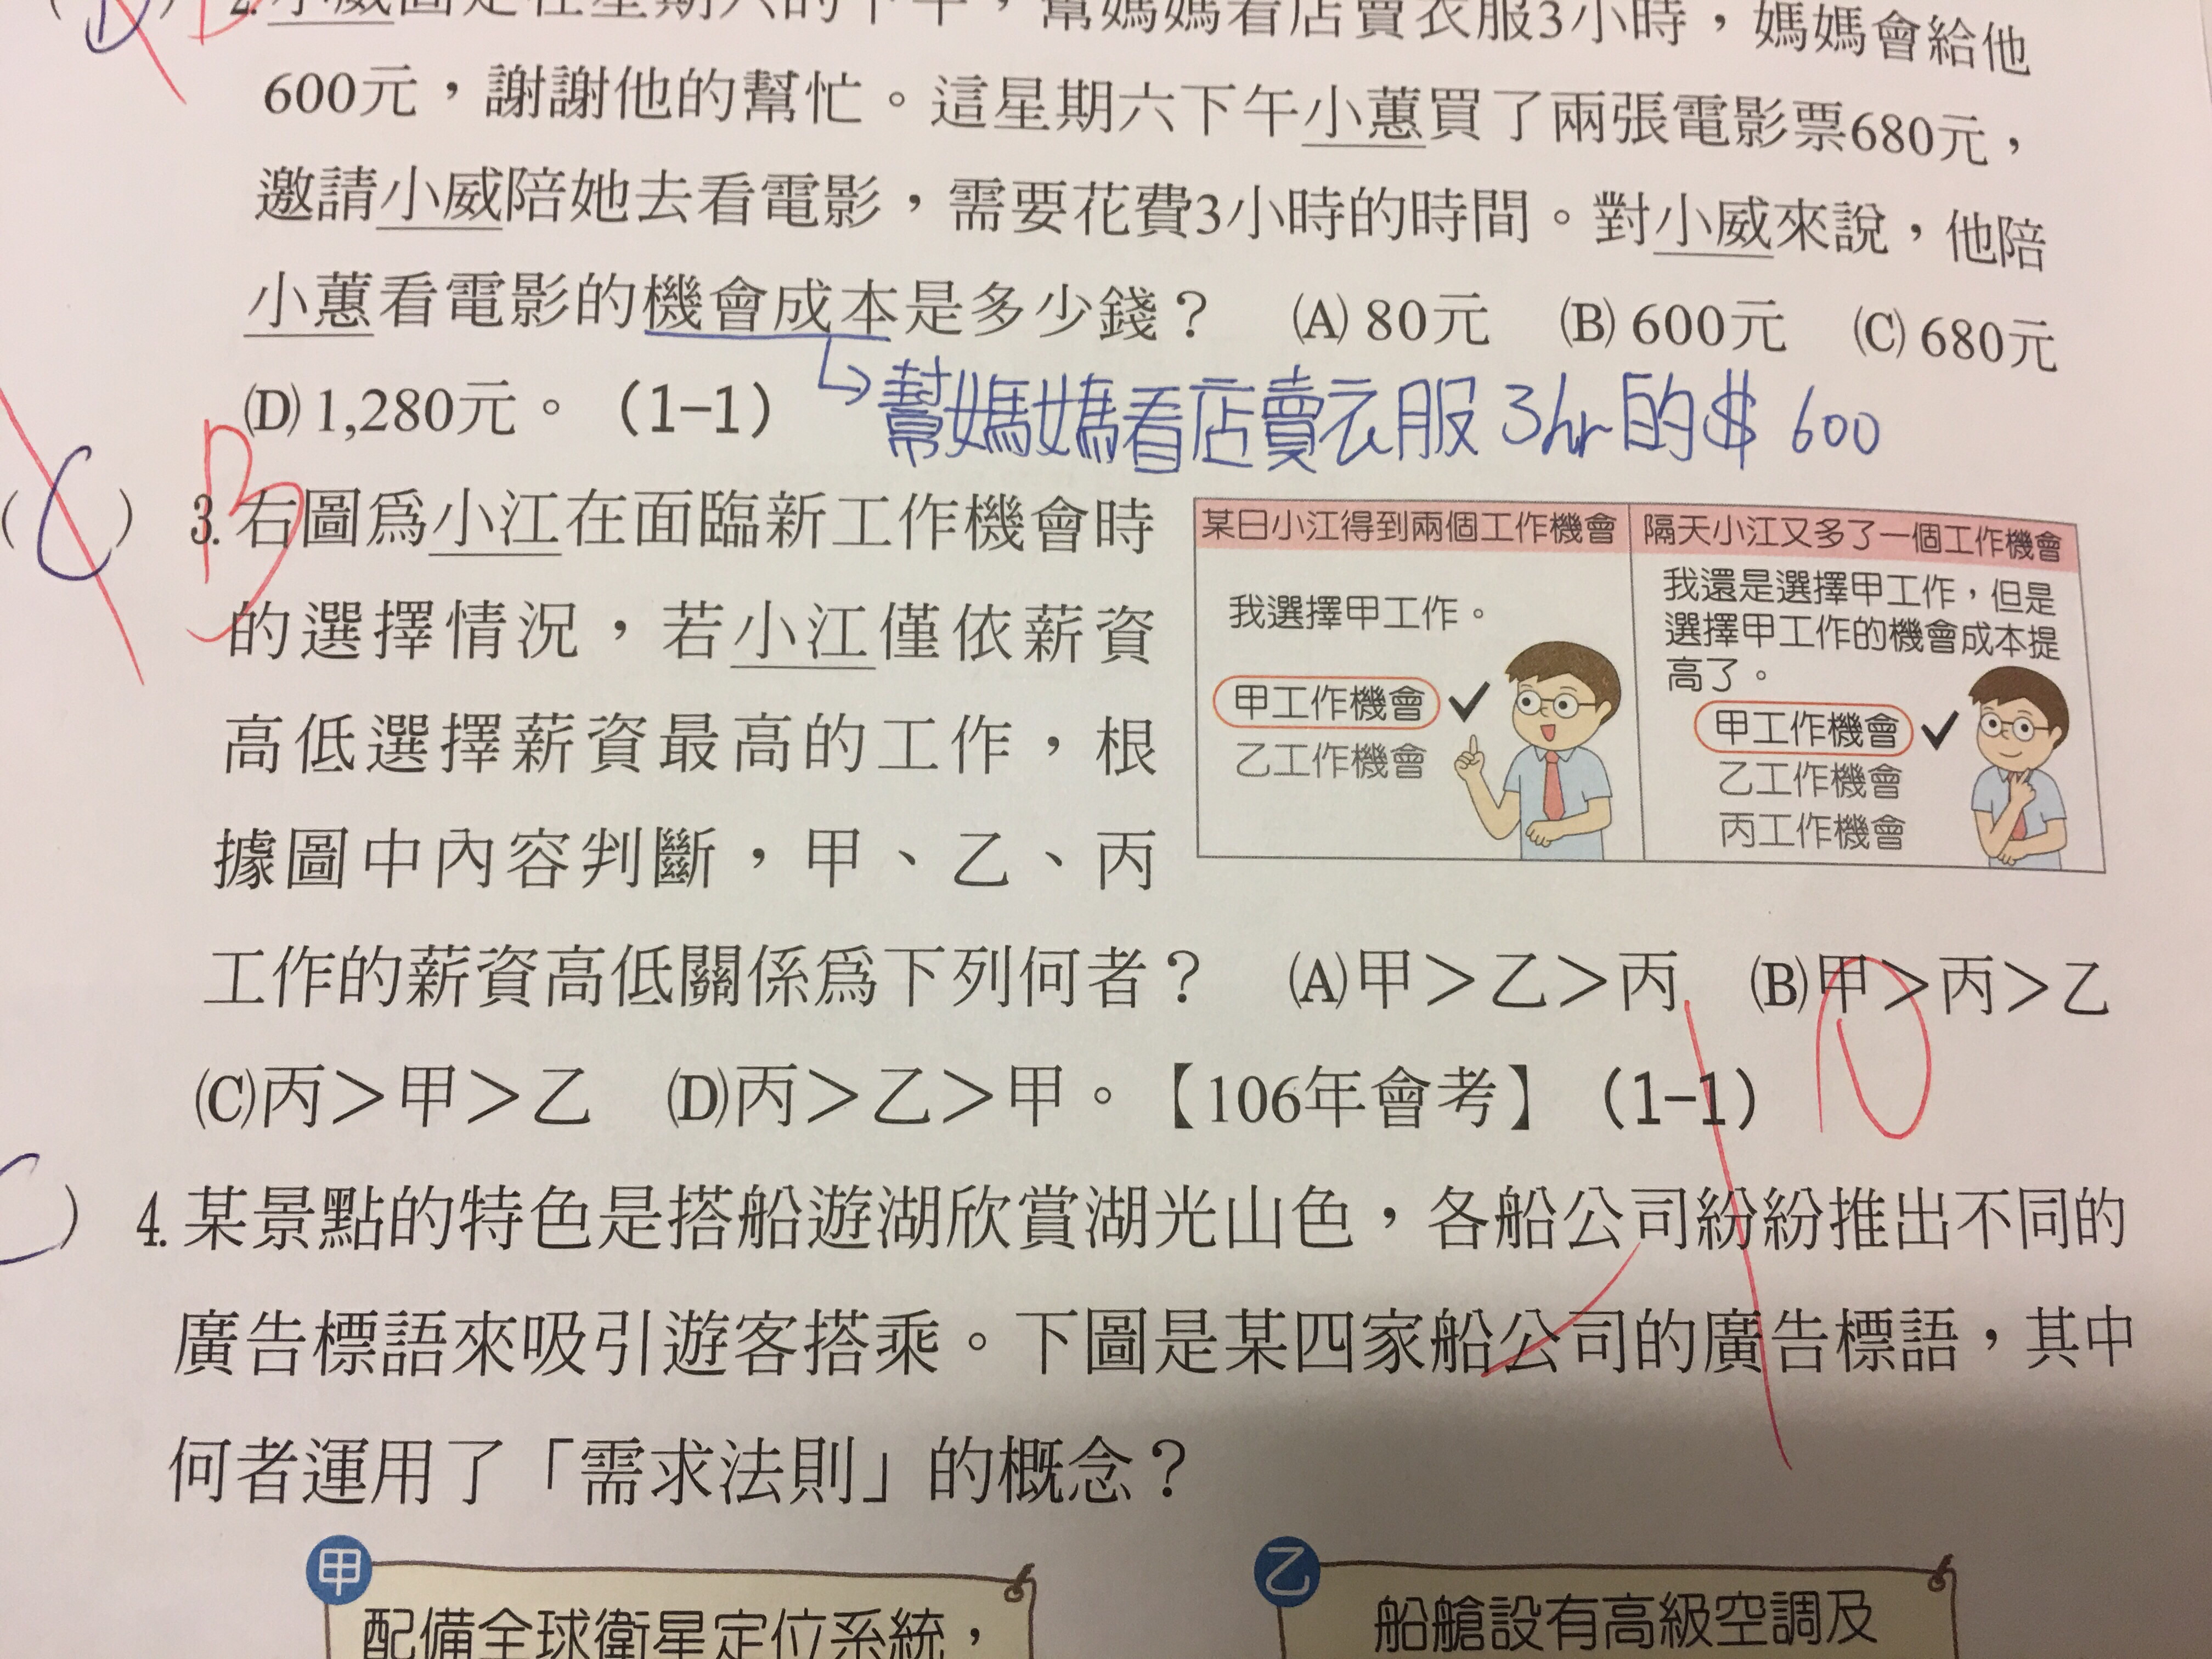 (D) B 2. 小威固定在星期六的下午，幫媽媽看店賣衣服3小時，媽媽會給他
600元，謝謝他的幫忙。這星期六下午小蕙買了兩張電影票680元，
邀請小威陪她去看電影，需要花費3小時的時間。對小威來說，他陪
小蕙看電影的機會成本是多少錢？ (A) 80元 (B) 600元 (C) 680元
(D) 1,280元。（1-1）
幫媽媽看店賣衣服 3hr 的 $ 600
(C) B 3. 右圖為小江在面臨新工作機會時
的選擇情況，若小江僅依薪資
高低選擇薪資最高的工作，根
據圖中內容判斷，甲、乙、丙
工作的薪資高低關係為下列何者？ (A)甲＞乙＞丙 (B)甲＞丙＞乙
(C)丙＞甲＞乙 (D)丙＞乙＞甲。【106年會考】（1-1）
某日小江得到兩個工作機會
我選擇甲工作。
甲工作機會 ✓
乙工作機會
隔天小江又多了一個工作機會
我還是選擇甲工作，但是
選擇甲工作的機會成本提
高了。
甲工作機會 ✓
乙工作機會
丙工作機會
C ) 4. 某景點的特色是搭船遊湖欣賞湖光山色，各船公司紛紛推出不同的
廣告標語來吸引遊客搭乘。下圖是某四家船公司的廣告標語，其中
何者運用了「需求法則」的概念？
甲
配備全球衛星定位系統，
乙
船艙設有高級空調及